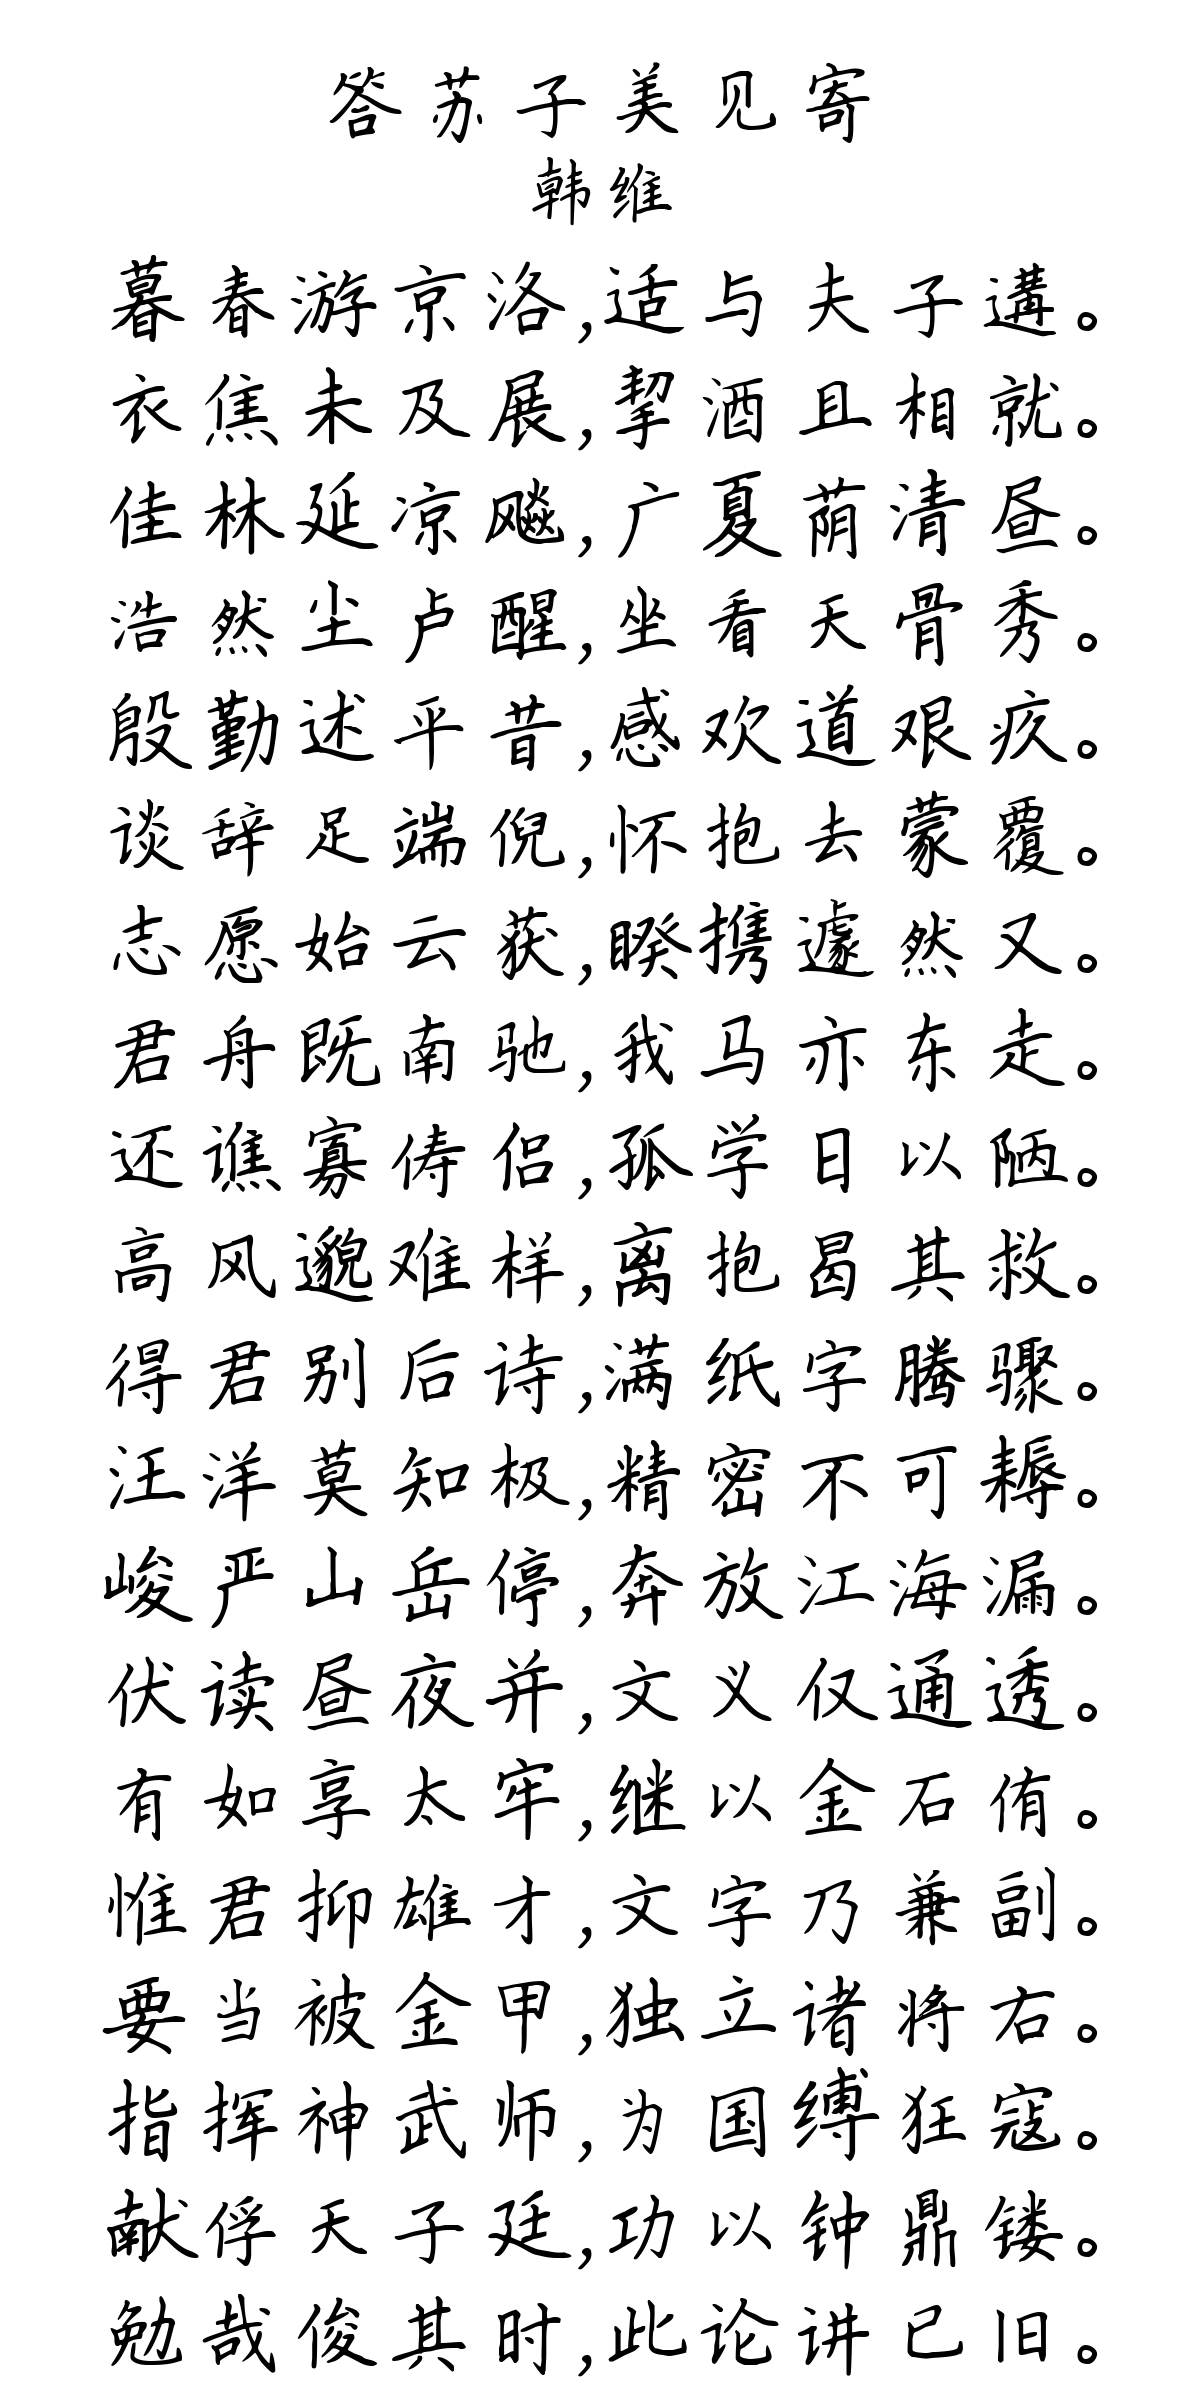 答苏子美见寄
韩维
暮春游京洛,适与夫子遘。
衣焦未及展,挈酒且相就。
佳林延凉飚,广夏荫清昼。
浩然尘卢醒,坐看天骨秀。
殷勤述平昔,感欢道艰疚。
谈辞足端倪,怀抱去蒙覆。
志愿始云获,暌携遽然又。
君舟既南驰,我马亦东走。
还谯寡俦侣,孤学日以陋。
高风邈难样,离抱曷其救。
得君别后诗,满纸字腾骤。
汪洋莫知极,精密不可耨。
峻严山岳停,奔放江海漏。
伏读昼夜并,文义仅通透。
有如享太牢,继以金石侑。
惟君抑雄才,文字乃兼副。
要当被金甲,独立诸将右。
指挥神武师,为国缚狂寇。
献俘天子廷,功以钟鼎镂。
勉哉俊其时,此论讲已旧。